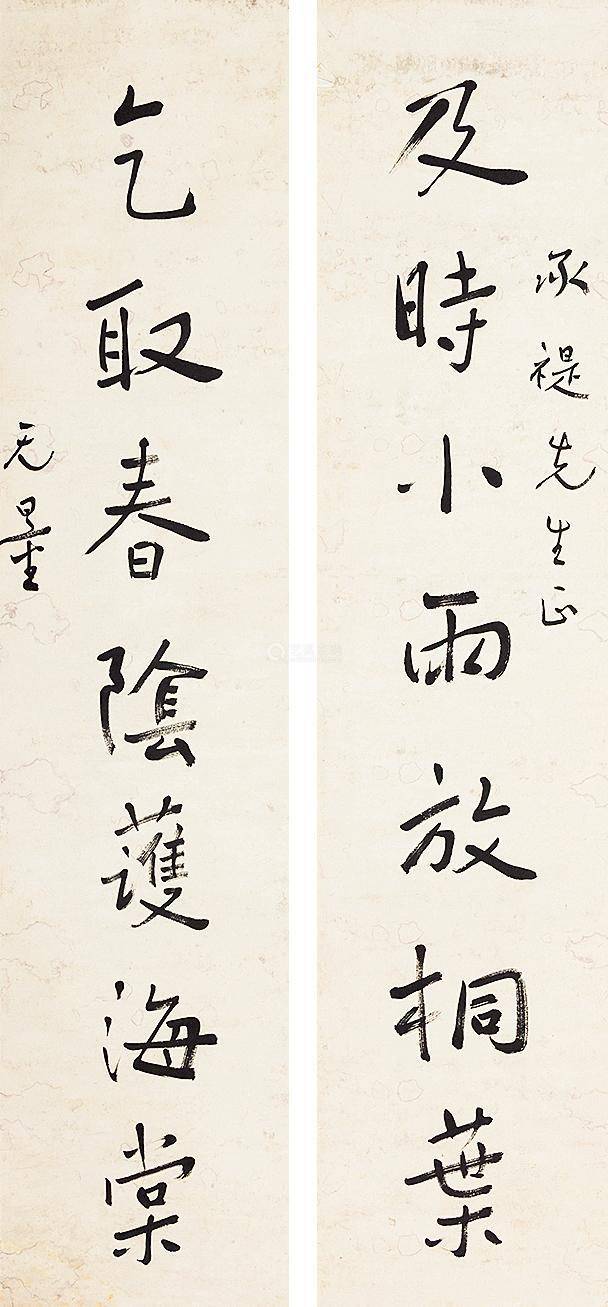 承禔先生正
及時小雨放桐葉
乞取春陰護海棠
无量